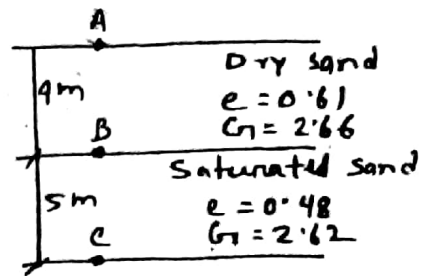 A
Dry sand
4m
e = 0.61
G = 2.66
B
Saturated sand
5m
e = 0.48
G = 2.62
C